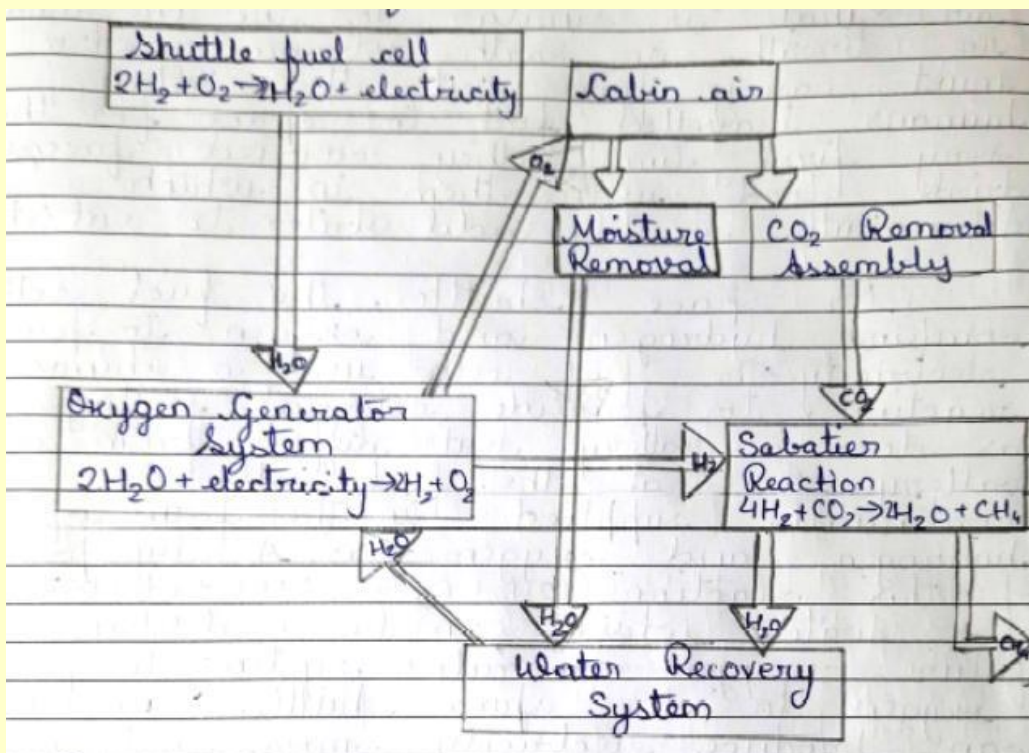 Shuttle fuel cell
2H₂+O₂→2H₂O+ electricity
Cabin air
O₂
Moisture
Removal
CO₂ Removal
Assembly
H₂O
CO₂
Oxygen Generator
System
2H₂O + electricity→2H₂+O₂
H₂
Sabatier
Reaction
4H₂+CO₂→2H₂O+CH₄
H₂O
H₂O
H₂O
CH₄
Water Recovery
System